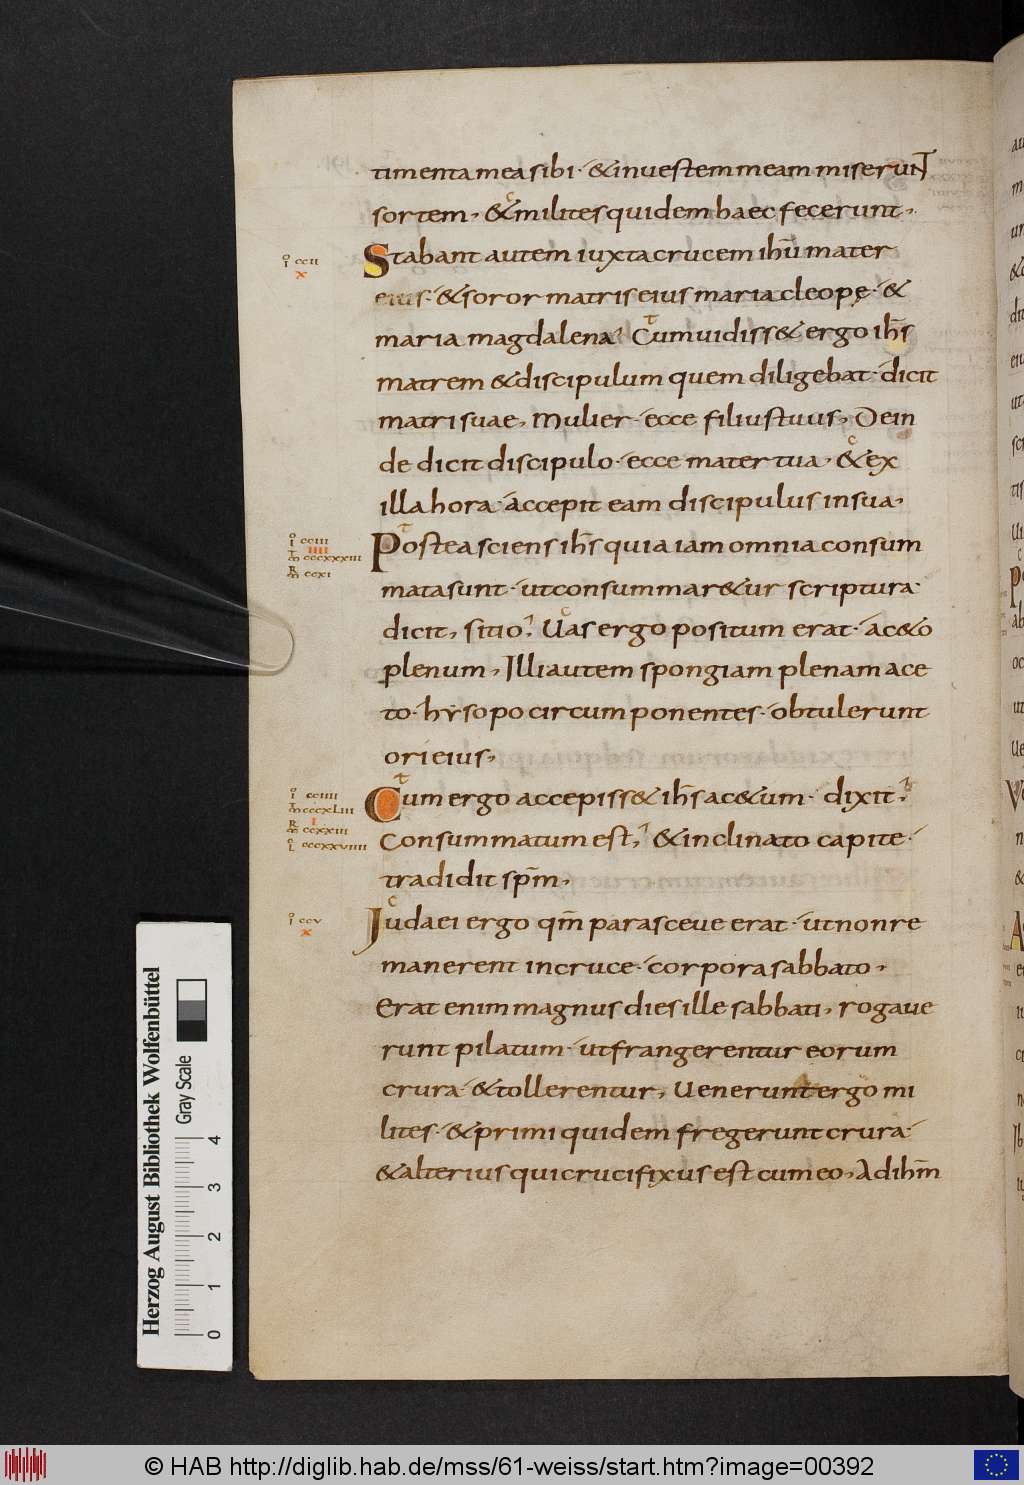 timenta mea sibi · & in uestem meam miserunt
sortem, & milites quidem haec fecerunt,
Stabant autem iuxta crucem ihū mater
eius · & soror matris eius maria cleopę · &
maria magdalena · Cum uidiss& ergo ihs̄
matrem & discipulum quem diligebat · dicit
matri suae, Mulier · ecce filius tuus, Dein
de dicit discipulo · ecce mater tua, & ex
illa hora · accepit eam discipulus in sua,
Postea sciens ihs̄ quia iam omnia consum
mata sunt · ut consummar&ur scriptura ·
dicit, sitio, Uas ergo positum erat · ac&o
plenum, Illi autem spongiam plenam ace
to · hysopo circumponentes · obtulerunt
ori eius,
Cum ergo accepiss& ihs̄ ac&um · dixit,
Consummatum est, & inclinato capite ·
tradidit spm̄,
Iudaei ergo qm̄ parasceue erat · ut non re
manerent in cruce · corpora sabbato,
Erat enim magnus dies ille sabbati, rogaue
runt pilatum · ut frangerentur eorum
crura · & tollerentur, Uenerunt ergo mi
lites · & primi quidem fregerunt crura ·
& alterius qui crucifixus est cum eo, Ad ihm̄
ccii
x
cciii
iiii
cccxxxiii
ccxi
cciiii
cccxliii
i
ccxxiii
cccxxviiii
ccv
x
Herzog August Bibliothek Wolfenbüttel
Gray Scale
0 1 2 3 4
© HAB http://diglib.hab.de/mss/61-weiss/start.htm?image=00392